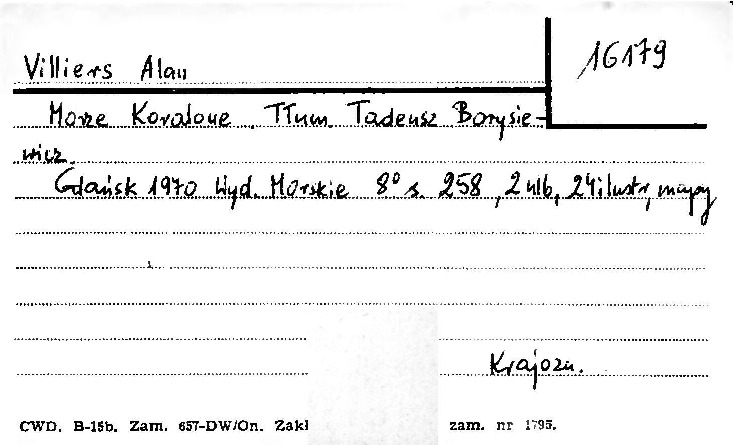 16179
Villiers Alan
Morze Koralowe. Tłum. Tadeusz Borysie-
wicz.
Gdańsk 1970 Wyd. Morskie 8° s. 258, 2 nlb, 24 ilustr, mapy
Krajozn.
CWD. B-15b. Zam. 657-DW/On. Zakł zam. nr 1795.